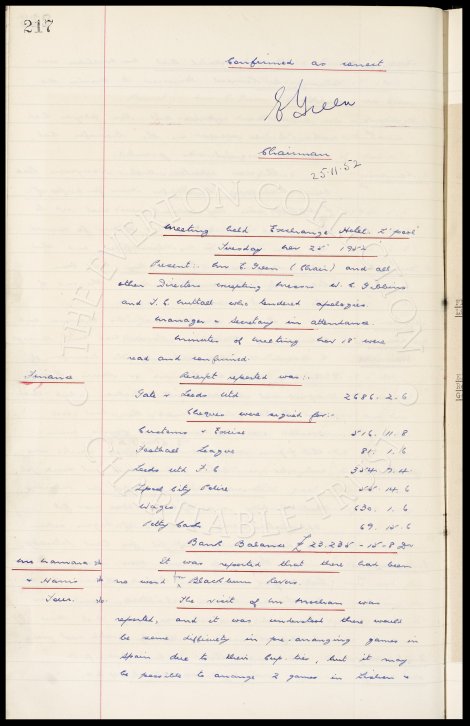 217
Confirmed as correct
E Green
Chairman
25.11.52
Meeting held Exchange Hotel L'pool
Tuesday Nov 25 1952
Present:- Mr E. Green (Chair) and all
other Directors excepting Messrs W. C. Gibbins
and T. C. Nuttall who tendered apologies.
Manager & Secretary in attendance.
Minutes of meeting Nov 18 were
read and confirmed.
Finance
Receipt reported was:-
Gate v Leeds Utd 2686. 2. 6
Cheques were signed for:-
Customs & Excise 516. 11. 8
Football League 81. 1. 6
Leeds Utd F. C
L'pool City Police 55. 14. 6
Wages 630. 1. 6
Petty Cash 69. 15. 6
Bank Balance £ 23.235 - 15. 8 Dr
It was reported that there had been
& Harris no word from Blackburn Rovers.
Tour. The visit of Mr was
reported, and it was understood there would
be some difficulty in pre-arranging games in
Spain due to their Cup ties, but it may
be possible to arrange 2 games in Lisbon &
THE EVERTON COLLECTION
CHARITABLE TRUST